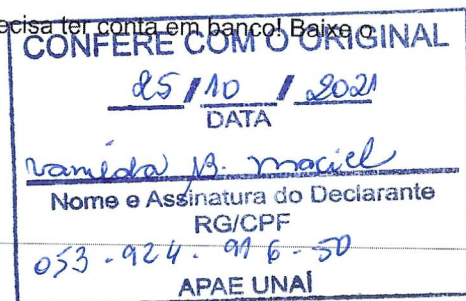 ecisa ter conta em banco! Baixe o
CONFERE COM O ORIGINAL
25/10/2021
DATA
B. Maciel
Nome e Assinatura do Declarante
RG/CPF
053-924.916-50
APAE UNAÍ